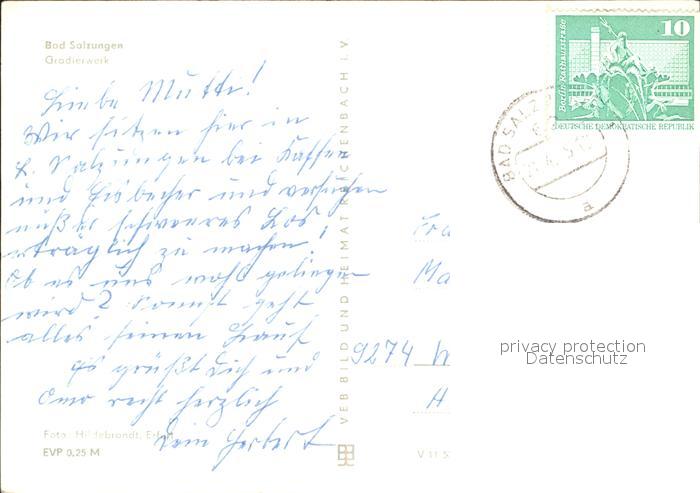 Bad Salzungen
Gradierwerk
Liebe Mutti!
Wir sitzen hier in
B. Salzungen bei Kaffee
und Eisbecher und versuchen
unser schweres Los
erträglich zu machen.
Ob es uns wohl gelingen
wird? Sonnst geht
alles seinen Lauf
Es grüßt Dich und
Omo recht herzlich
Dein Herbert
Foto: Hildebrandt, Erfurt
EVP 0,25 M
VEB BILD UND HEIMAT REICHENBACH I. V
V 11 5
Berlin Rathausstraße
10
DEUTSCHE DEMOKRATISCHE REPUBLIK
BAD SALZ
a
Fra
Ma
9274
H
privacy protection
Datenschutz